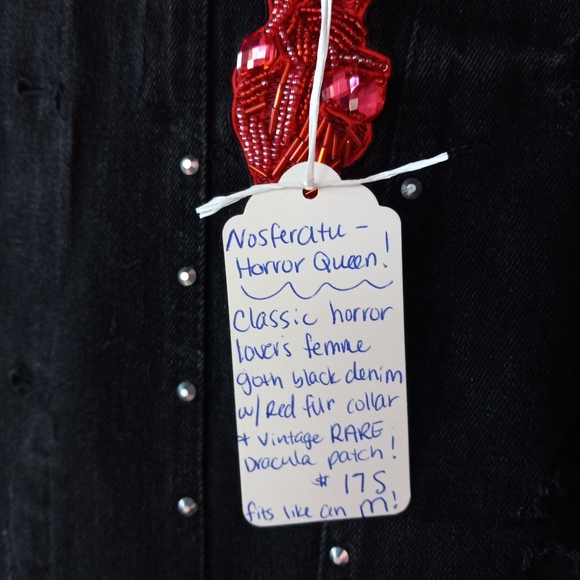 Nosferatu -
Horror Queen!
Classic horror
lover's femme
goth black denim
w/ Red fur collar
+ vintage RARE
Dracula patch!
$ 175
fits like an M!